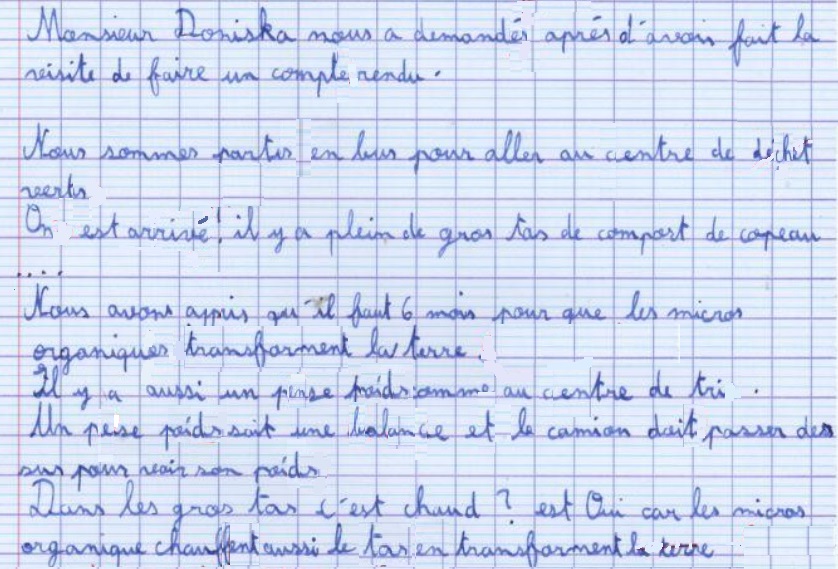 Monsieur Doniska nous a demandés aprés d'avoir fait la
visite de faire un compte rendu.
Nous sommes partis en bus pour aller au centre de déchet
verts
On est arrivé! il y a plein de gros tas de compost de copeau
....
Nous avons appis qu'il faut 6 mois pour que les micros
organiques transforment la terre.
Il y a aussi un pense poids comme au centre de tri.
Un pese poids soit une balance et le camion doit passer des
sus pour voir son poids
Dans les gros tas c'est chaud? est Oui car les micros
organique chauffent aussi le tas en transforment la terre